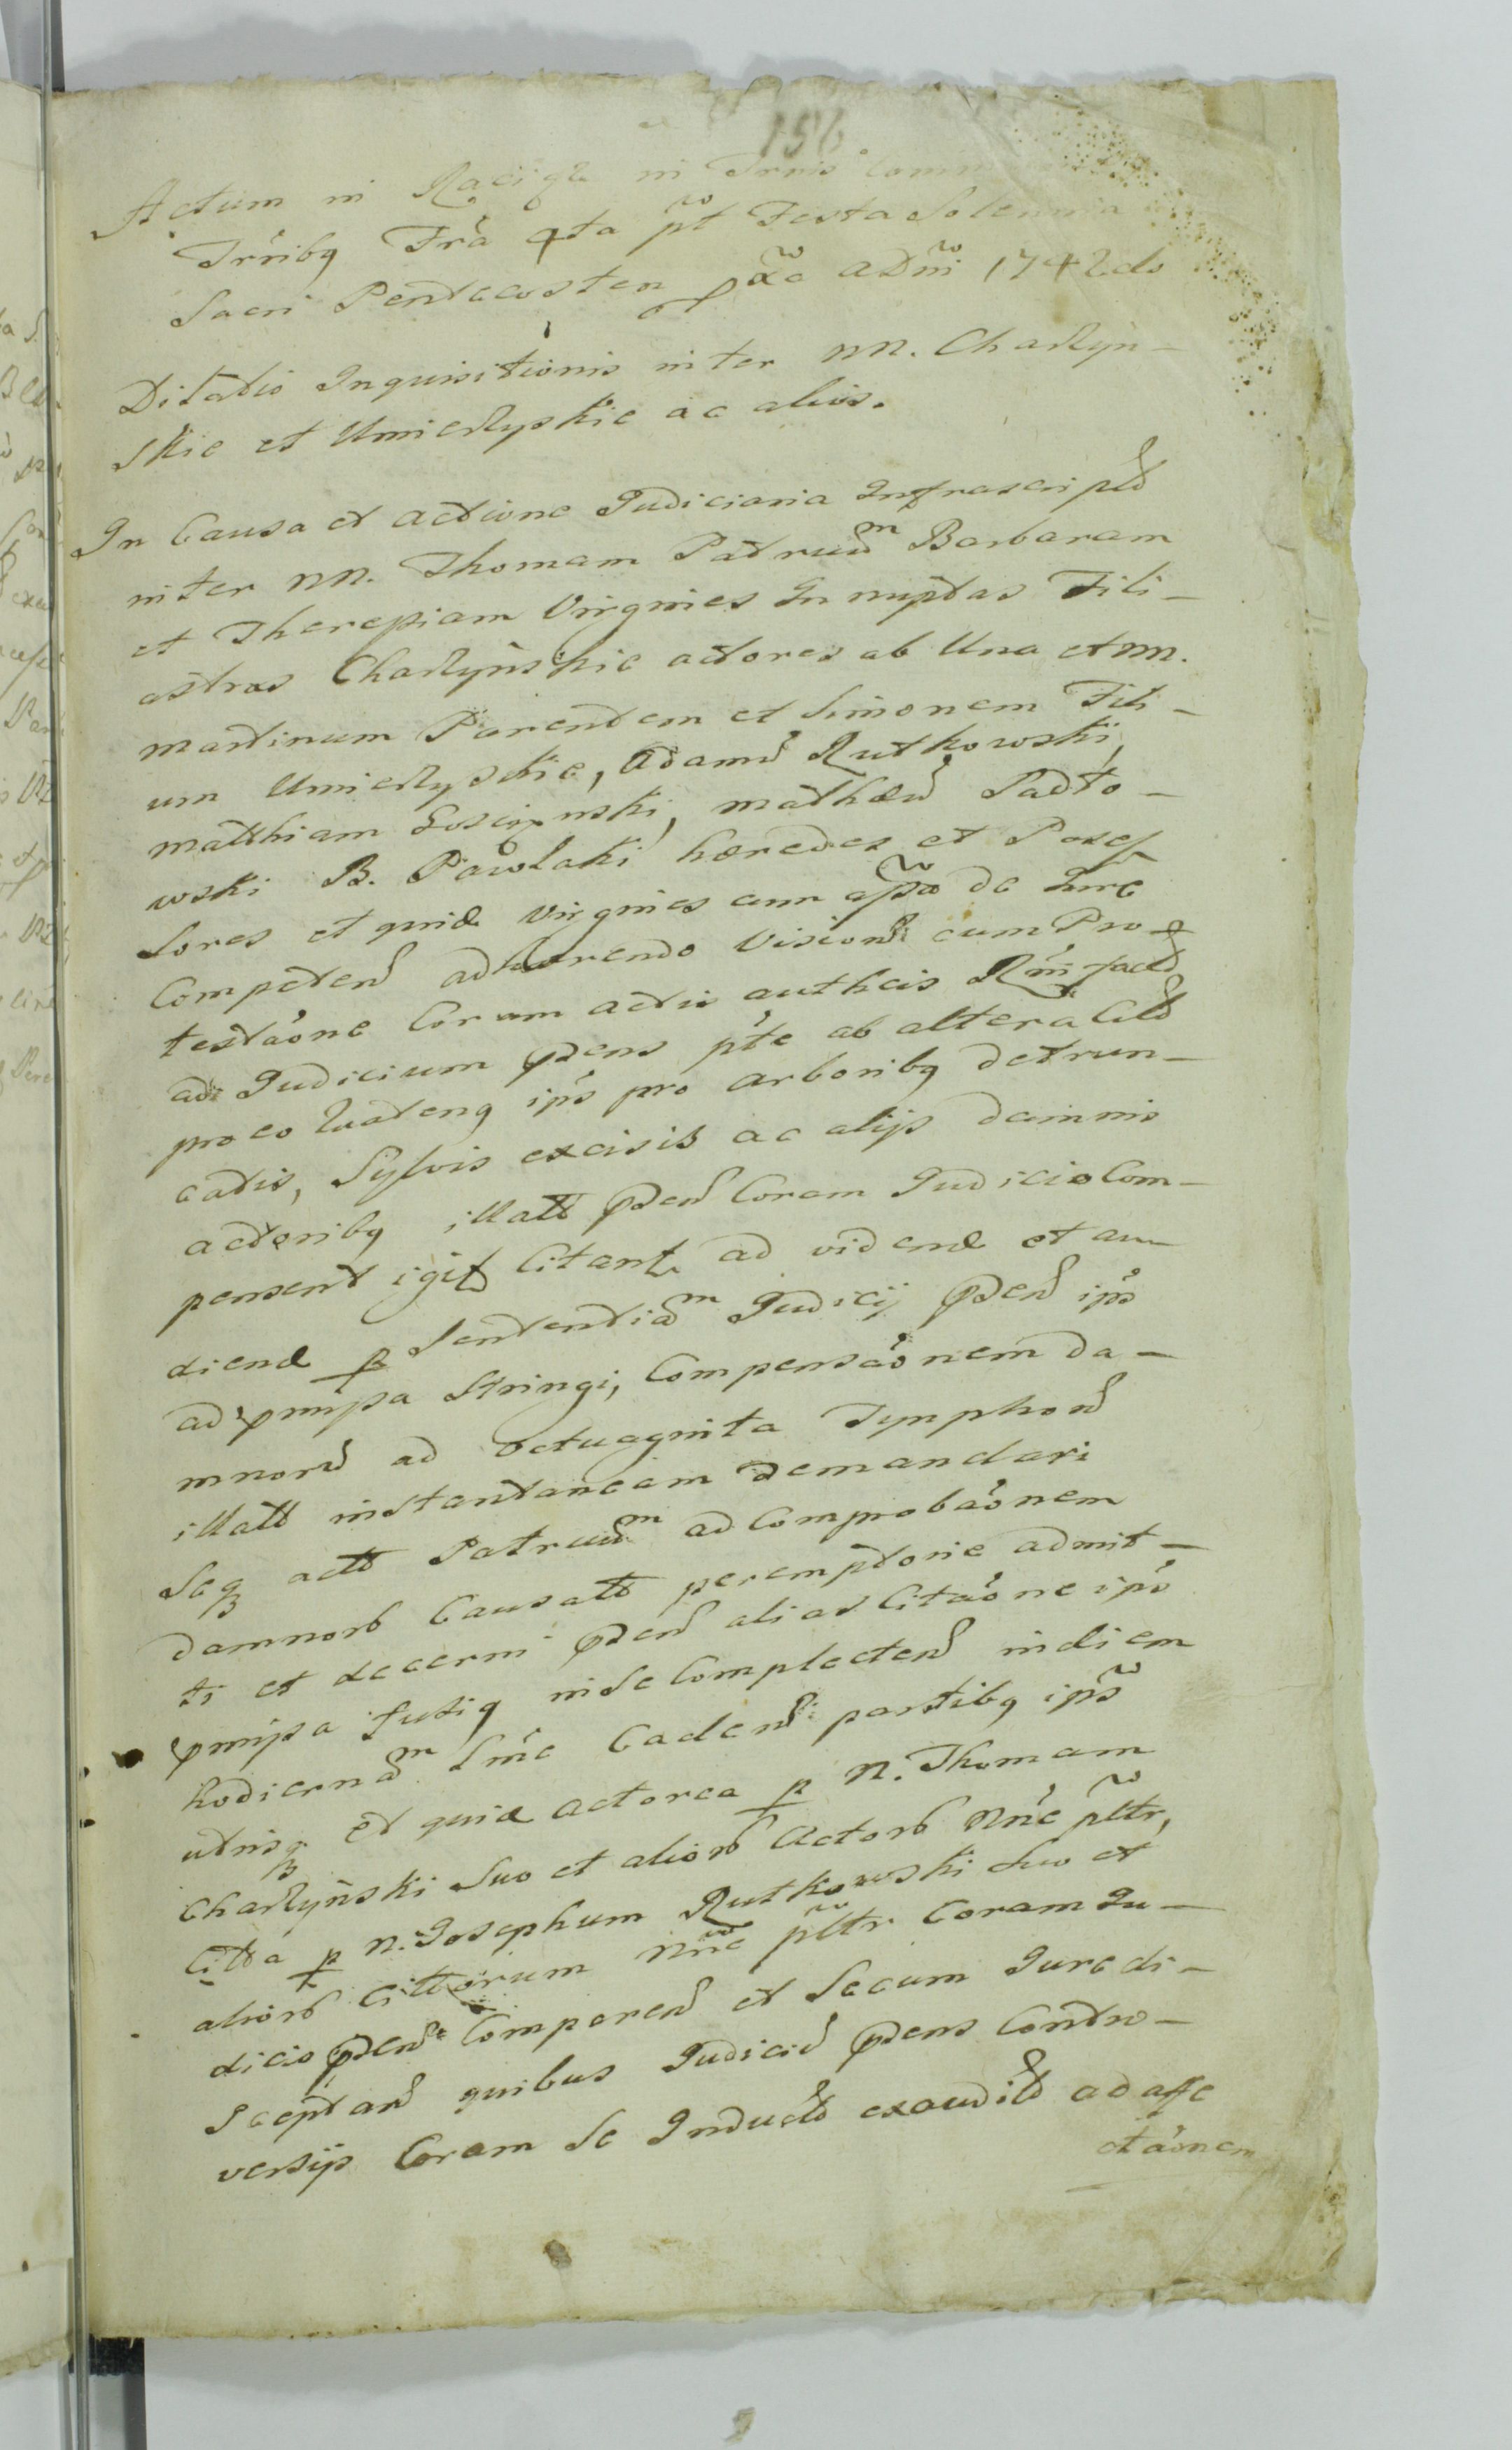 156
Actum in Raciąż in Trnis Com
Trnibq Fra 4ta pt Festa Solennia
Sacri Pentecosten pxa ADni 1742do
Ditatio Inquisitionis inter NN. Charzyn-
skie et Umierzyskie ac alios.
In Causa et actione Judiciaria Infrascript
inter NN. Thomam Patruum Barbaram
et Theresiam Virgines Innuptas Fili-
astras Charzyńskie actores ab Una et NN.
Martinum Parentem et Simonem Fili-
um Umierzyskie, Adamum Rutkowski,
Matthiam mski, Mathæum Sadło-
wski B. Pawłaki hæredes et Posses
sores et quidem Virgines cum assa de Jure
Competen adhærendo Vision cum Pro-
testaone Coram actis autheis Rm fact
ad Judicium pdens pte ab altera Citt
pro eo quatenq ips pro arboribq detrun-
catis, Sylvis excisis ac alijs damnis
actoribq illatt pden Coram Judicio Com-
pensent igitt Citant ad vidend et au-
diend p Sententiam Judicij pden ips
ad pmissa Stringi, Compensaonem da-
mnorum ad Octuaginta Tymphon
illatt instantaneam demandari
Seq actt Patruum ad Comprobaonem
damnorum Causatt peremptorie admit-
ti et decerni pden alias Citaone ips
pmissa fusiq in se Complecten in diem
hodiernam Sme Caden partibq ips
utrisq et quidem actorea p N. Thomam
Charzyński Suo et aliorum Actorum Nne pltr,
Citta p N. Josephum Rutkowski Suo et
aliorum Cittorum Nne pltr Coram Ju-
dicio pden Comparen et Secum Jure di-
sceptan quibus Judicium pdens Contro-
versijs Coram Se Induct exaudit ad affe
ctaonem